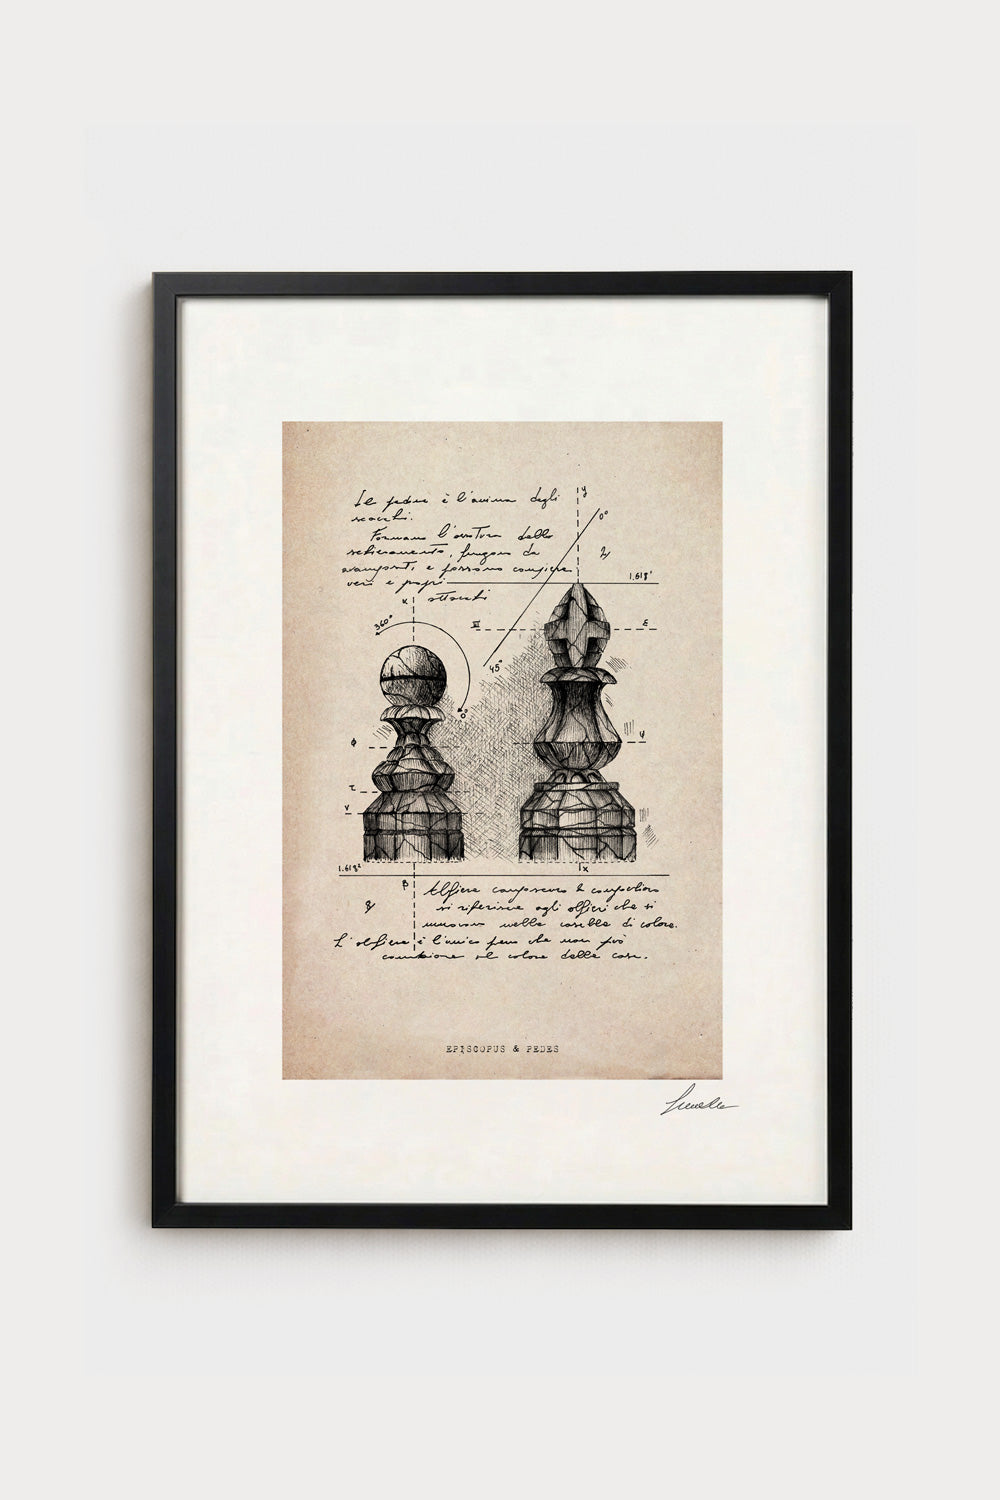 Il pedone è l'anima degli
scacchi.
Formano l'ossatura dello
schieramento, fungono da
avamposti, e possono compiere
veri e propri
attacchi
y
0°
1.618'
K
360°
III
ε
45°
0°
Φ
ψ
τ
V
1.618²
x
β
Alfiere
si riferisce agli alfieri che si
muovono nelle caselle di colore.
L'alfiere è l'unico pezzo che non può
cambiare il colore delle case.
EPISCOPUS & PEDES